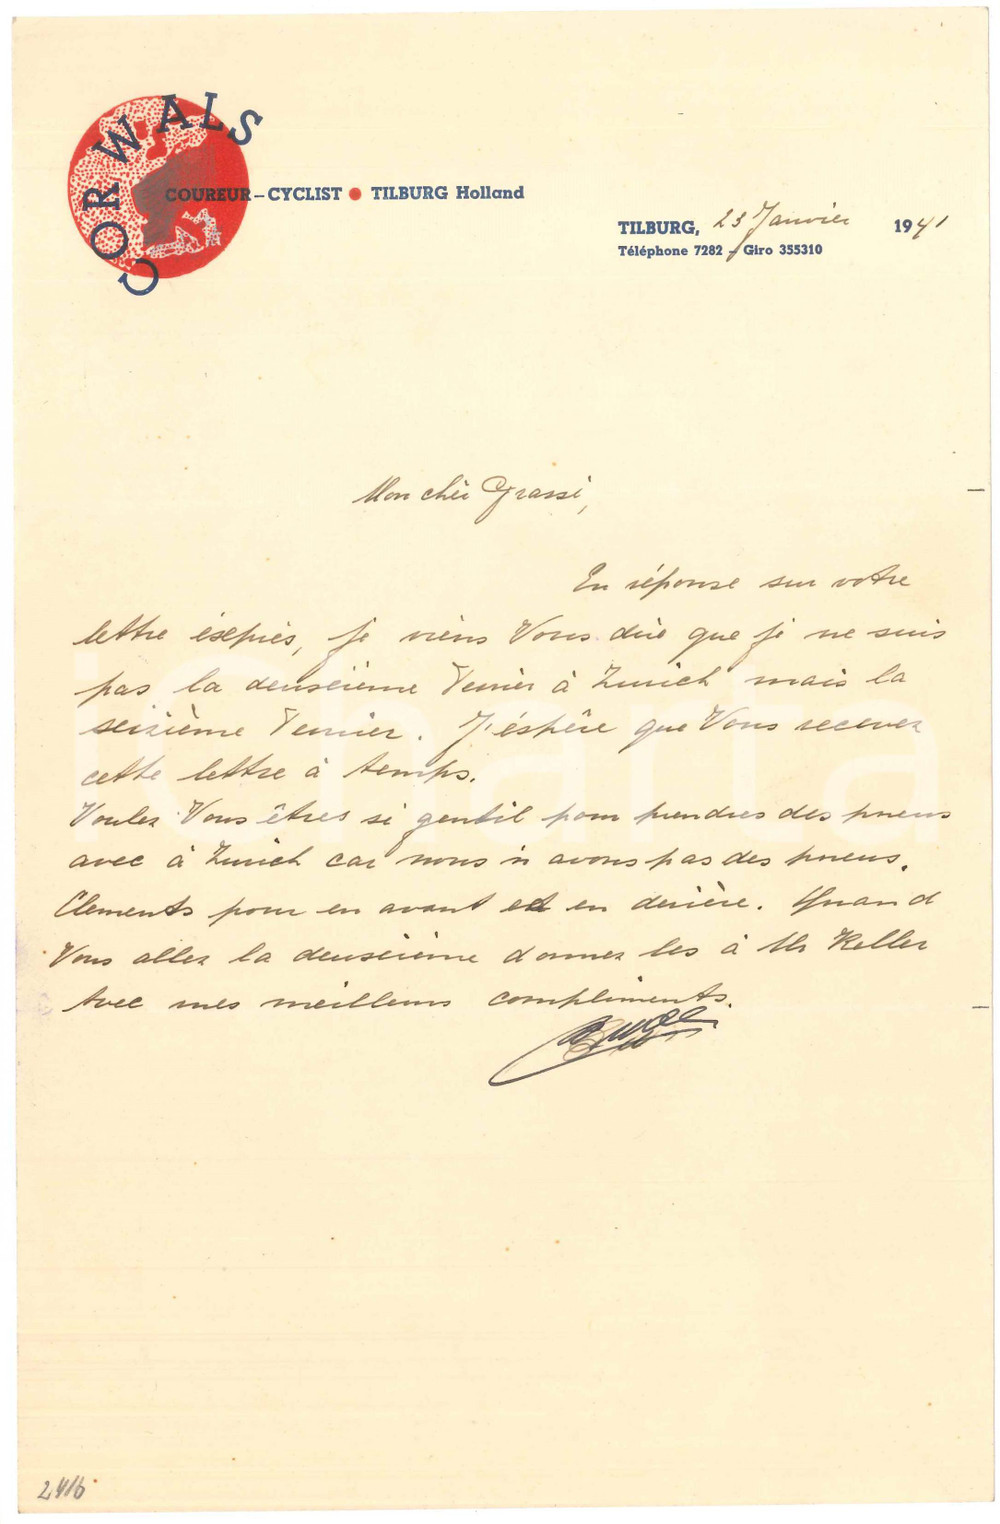 COR WALS
COUREUR-CYCLIST • TILBURG Holland
TILBURG, 23 Janvier 1941
Téléphone 7282 - Giro 355310
Mon chèr Grassi,
En réponse sur votre
lettre éxpriès, je viens Vous dire que je ne suis
pas la deuseième Fevrièr à Zurich mais la
seizième Fevrier. J'éspêre que Vous recevez
cette lettre à temps.
Voulez Vous êtres si gentil pour prendres des pneus
avec à Zurich car nous n avons pas des pneus.
Clements pour en avant et en derière. Quand
Vous allez la deuseième donnez les à Mr Keller
Avec mes meilleurs compliments.
2416